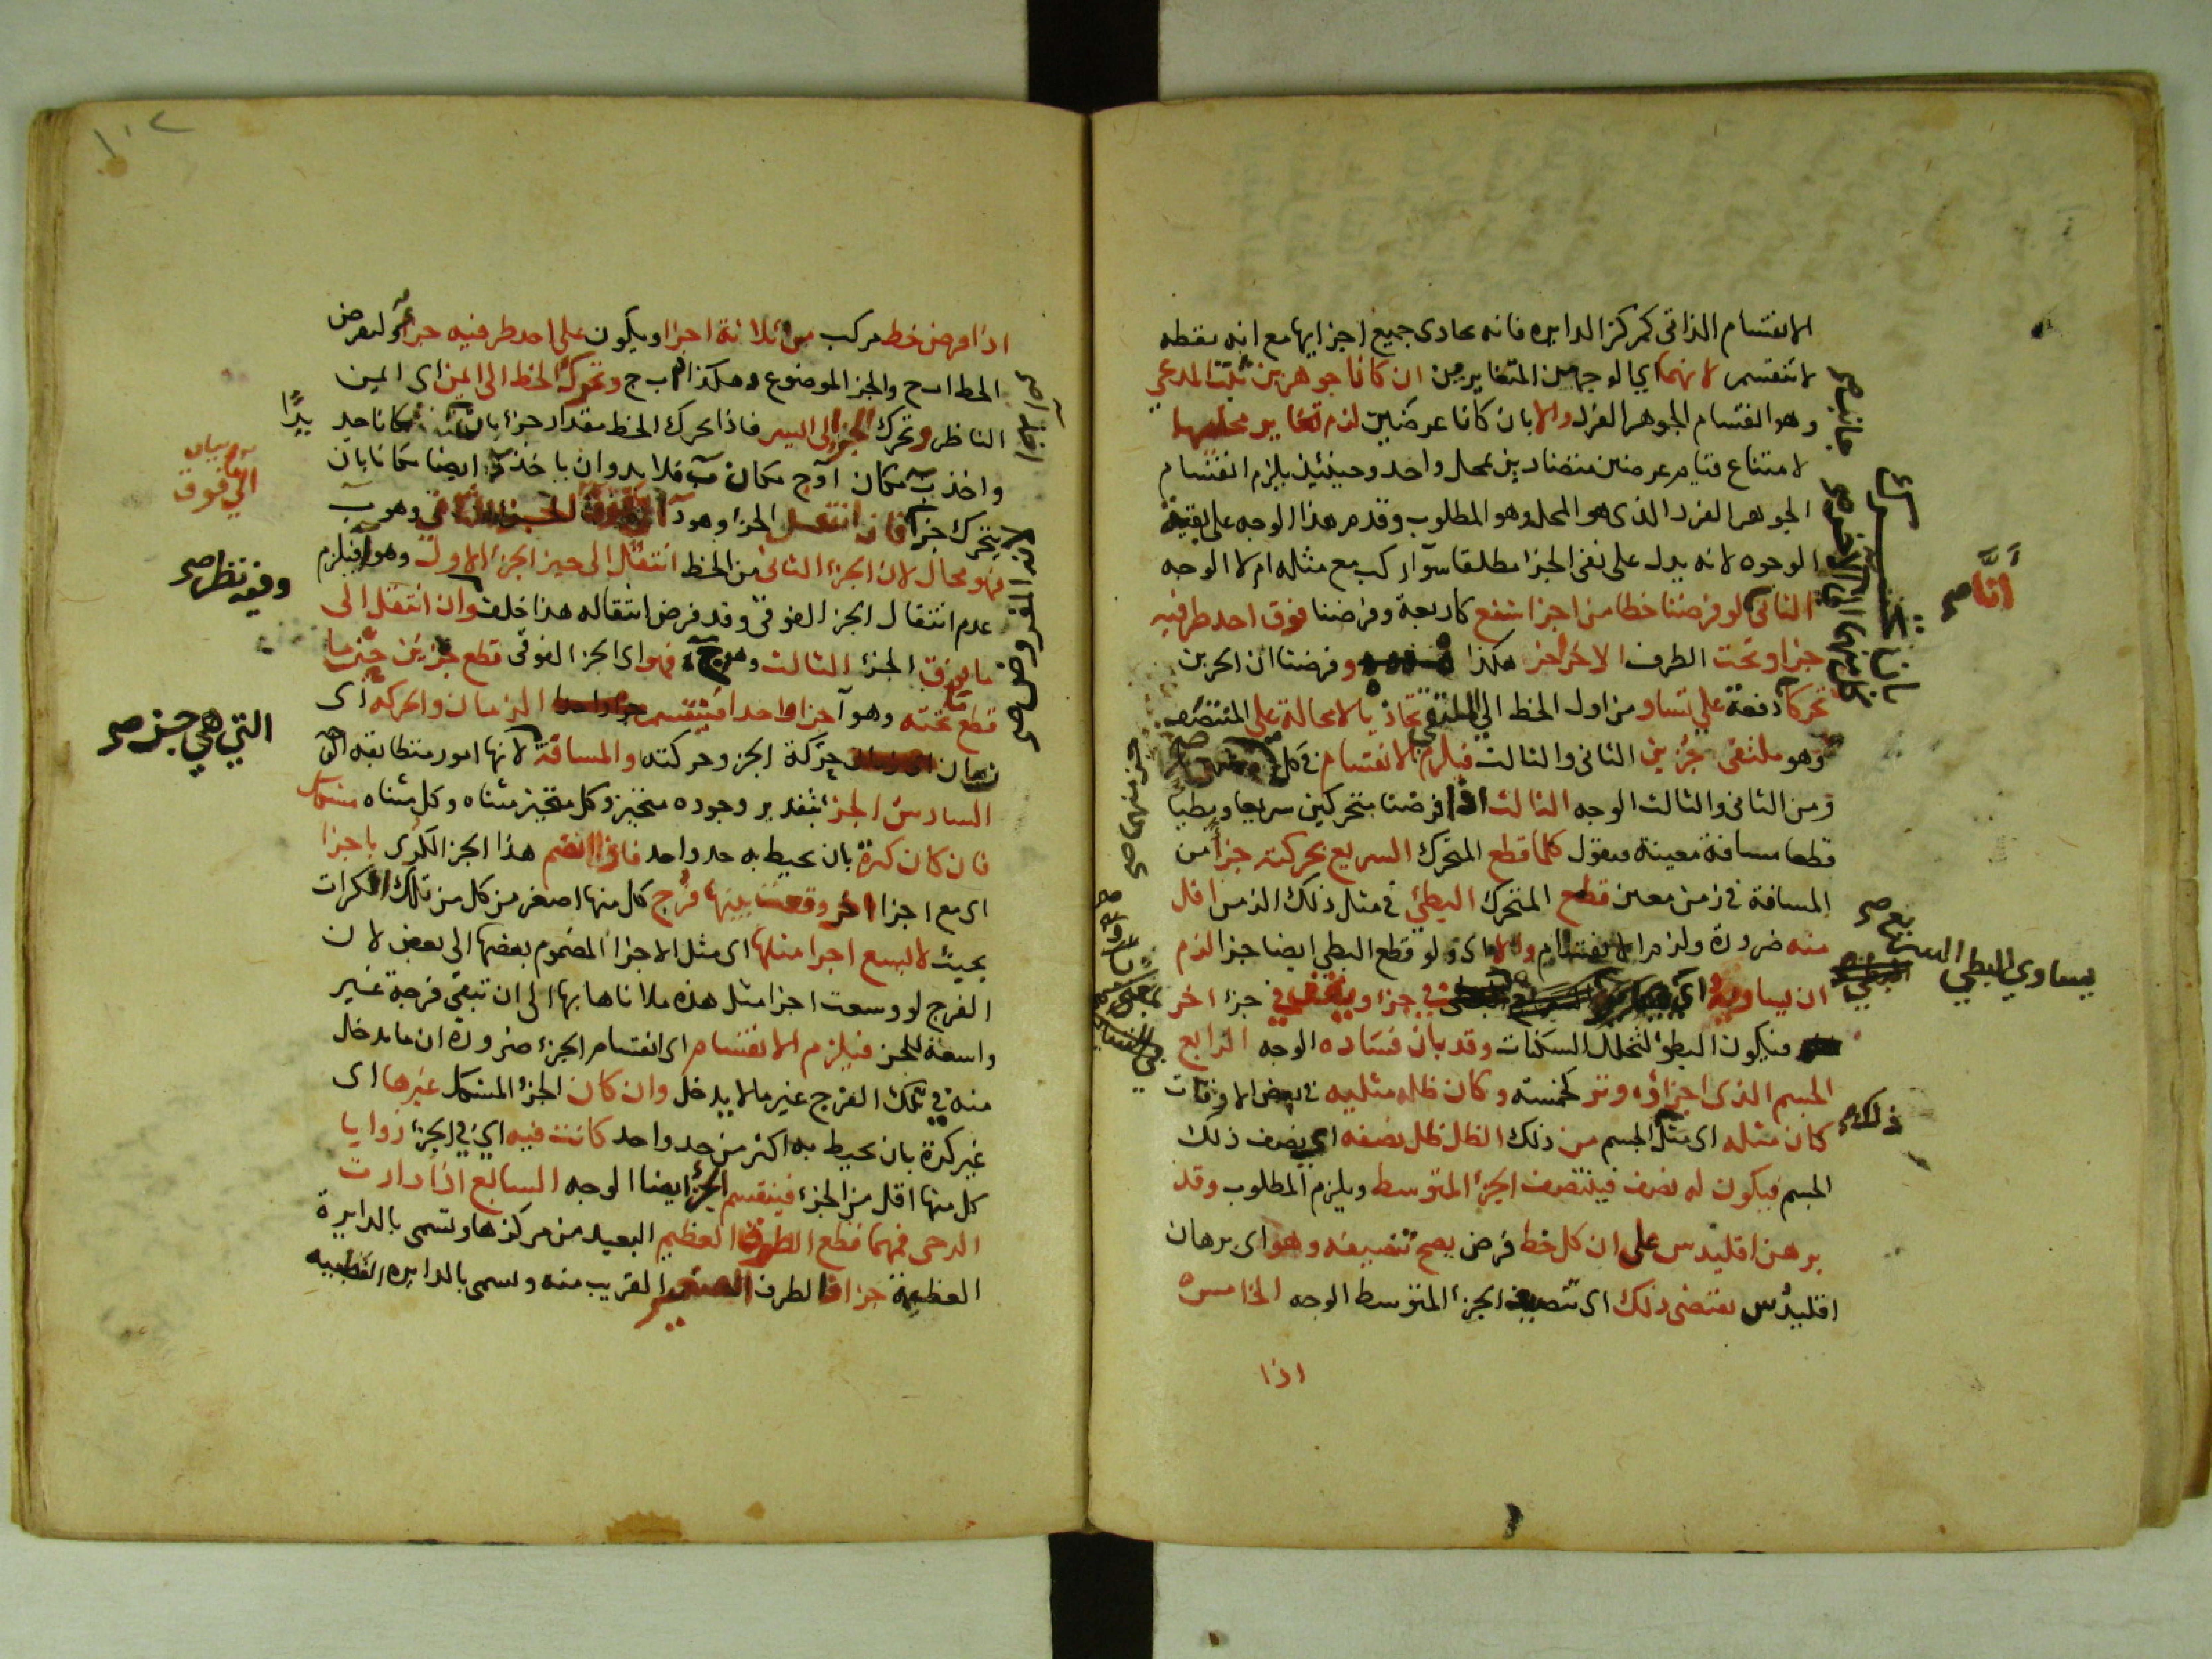 الانقسام الذاتي كمركز الدايره فانه يحاذى جميع اجزايها مع انه نقطه
لا تنقسم لانهما اي الوجهين المتغايرين ان كانا جوهرين ثبت المدعي
وهو انقسام الجوهر الفرد والا بان كانا عرضين لزم تغاير محلهما
لامتناع قيام عرضين متضادين بمحل واحد وحينئذ يلزم انقسام
الجوهر الفرد الذى هو المحل وهو المطلوب وقدم هذا الوجه على بقية
الوجوه لانه يدل على نفى الجزا مطلقا سوآ اركب مع مثله ام لا الوجه
الثانى لو فرضنا خطا من اجزا شفع كاربعة وفرضنا فوق احد طرفيه
جزا وتحت الطرف الاخر اخر هكذا وفرضنا ان الجزين
تحركا دفعة علي تساو من اول الخط الي تحاذيا لا محالة علي المنتصف
وهو ملتقى جزين الثانى والثالث فيلزم الانقسام في كل
ومن الثانى والثالث الوجه الثالث اذا فرضنا متحركين سريعا وبطيا
قطعا مسافة معينة فنقول كلما قطع المتحرك السريع بحركته جزأ من
المسافة في زمن معين قطع المتحرك البطئ في مثل ذلك الزمن اقل
منه ضرورة ولزم الانقسام والا اى ولو قطع البطى ايضا جزا لزم
ان يساويه اي في جزا ويقف في جزء اخر
فيكون البطؤ لتخلل السكنات وقد بان فساده الوجه الرابع
الجسم الذى اجزاؤه وتر كخمسته وكان ظله مثليه في بعض الاوقات
كان مثله اى مثل الجسم من ذلك الظل ظل نصفه اي نصف ذلك
الجسم فيكون له نصف فينتصف الجزء المتوسط ويلزم المطلوب وقد
برهن اقليدس على ان كل خط فرض يصح تنصيفه وهو اى برهان
اقليدس يقتضى ذلك اى تنصيف الجزء المتوسط الوجه الخامس
اذا
جانبه صح
أنَّا صح
يساوي البطي السريع صح
ذلك
١٠٢
اذا فرض خط مركب من ثلاثة اجزا ويكون على احد طرفيه جزأ ولنفرض
الخط ا ب ج والجزا الموضوع د هكذا ا ب ج وتحرك الخط الى اليمين اى اليمين
الناظر وتحرك الجزا الى اليسر فاذا تحرك الخط مقدار جزا بان مكانا حد
واخذ ب مكان آ وج مكان ب فلا بد وان ياخذ د ايضا مكانا بان
يتحرك جزا فان انتقل الجزا وهو د وهو ب
فهو محال لان الجزء الثانى من الخط انتقل الى حيز الجزء الاول وهو ا فيلزم
عدم انتقال الجزء الفوقى وقد فرض انتقاله هذا خلف وان انتقل الى
ما فوق الجزء الثالث وهو ج فهو اى الجزء الفوقى قطع جزين حين ما
قطع ما تحته وهو آ جزا واحدا فينقسم الزمان والحركه اى
زمان حركة الجزء وحركته والمسافة لانها امور متطابقه الوجه
السادس الجزء بتقدير وجوده متحيز وكل متحيز متناه وكل متناه متشكل
فان كان كرة بان يحيط به حد واحد فاذا انضم هذا الجزء الكرى باجزا
اى مع اجزا اخر وقعت بينها فرج كل منها اصغر من كل من تلك الكرات
بحيث لا يسع اجزا مثلها اى مثل الاجزا المضموم بعضها الى بعض لان
الفرج لو وسعت اجزا مثل هذه ملاناها بها الى ان تبقى فرجة غير
واسعة للجزء فيلزم الانقسام اى انقسام الجزء ضرورة ان ما يدخل
منه في تلك الفرج غير ما لا يدخل وان كان الجزء المتشكل غيرها اى
غير كرة بان يحيط به اكثر من حد واحد كانت فيه اي في الجزء زوايا
كل منها اقل من الجزء فينقسم الجزء ايضا الوجه السابع اذا دارت
الرحى فمهما قطع الطوق العظيم البعيد من مركزها وتسمى بالدايرة
العظيمة جزا فالطرف الصغير القريب منه وتسمى بالدايره القطبيه
بدًا
اي فوق
وفيه نظر صح
التي هي جنز صح
لانه المفروض صح